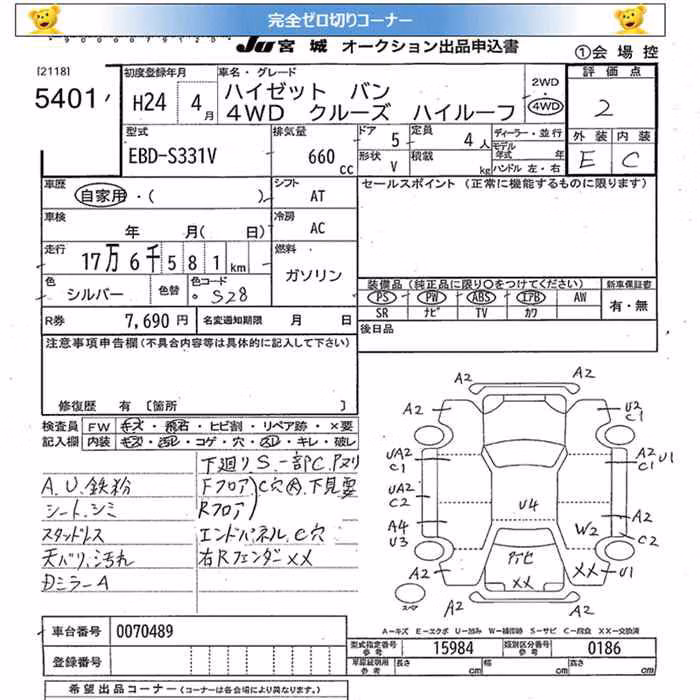 完全ゼロ切りコーナー
JU宮城 オークション出品申込書
①会場控
[2118]
5401
初度登録年月
H24 4月
車名・グレード
ハイゼット バン
4WD クルーズ ハイルーフ
2WD
・
4WD
評価点
2
外装 内装
E C
型式
EBD-S331V
排気量
660cc
ドア 5
定員 4人
形状 V
積載 kg
ディーラー・並行
モデル年式 年
ハンドル 左・右
車歴
自家用・( )
シフト
AT
セールスポイント (正常に機能するものに限ります)
車検
年 月( 日)
冷房
AC
走行
17万6千581km
燃料
ガソリン
色
シルバー
色替
色コード
S28
装備品 (純正品に限り○をつけてください)
新車保証書
PS PW ABS エアB AW
SR ナビ TV カワ
有・無
R券 7,690円
名変通知期限 月 日
後日品
注意事項申告欄 (不具合内容等は具体的に記入して下さい)
修復歴 有 〔箇所 〕
検査員 FW キズ・飛石・ヒビ割・リペア跡・×要
記入欄 内装 キズ・汚れ・コゲ・穴・スレ・キレ・破レ
下廻りS.一部C.Pヌリ
A.U.鉄粉
Fフロア)C穴 下見要
シート.シミ
Rフロア
スタッドレス
エンドパネル.C穴
天バリ.汚れ
右Rフェンダーxx
Dミラー A
A2
A2
A2
U2
C1
UA2
C1
A2
U1
UA2
C2
U4
A4
U3
W2
A2
C2
アトヒ
xx
xx
U1
A2
A2
A2
スペア
A-キズ E-エクボ U-凹み W-補修跡 S-サビ C-腐食 XX-交換済
車台番号 0070489
型式指定番号 参考 15984
類別区分番号 参考 0186
登録番号
車庫証明用 参考
長さ cm
幅 cm
高さ cm
希望出品コーナー (コーナーは各会場により異なります。)